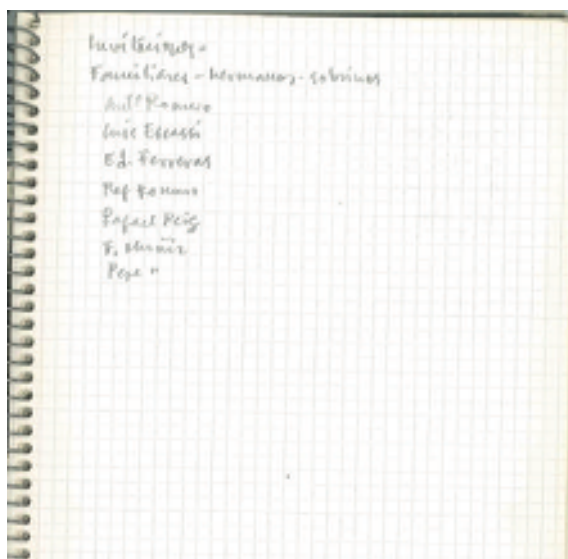 Invitaciones -
Familiares - hermanos - sobrinos
Antº Romero
Luis Escassi
Ed. Ferreras
Raf Romero
Rafael Reig
F. Muñiz
Pepe "